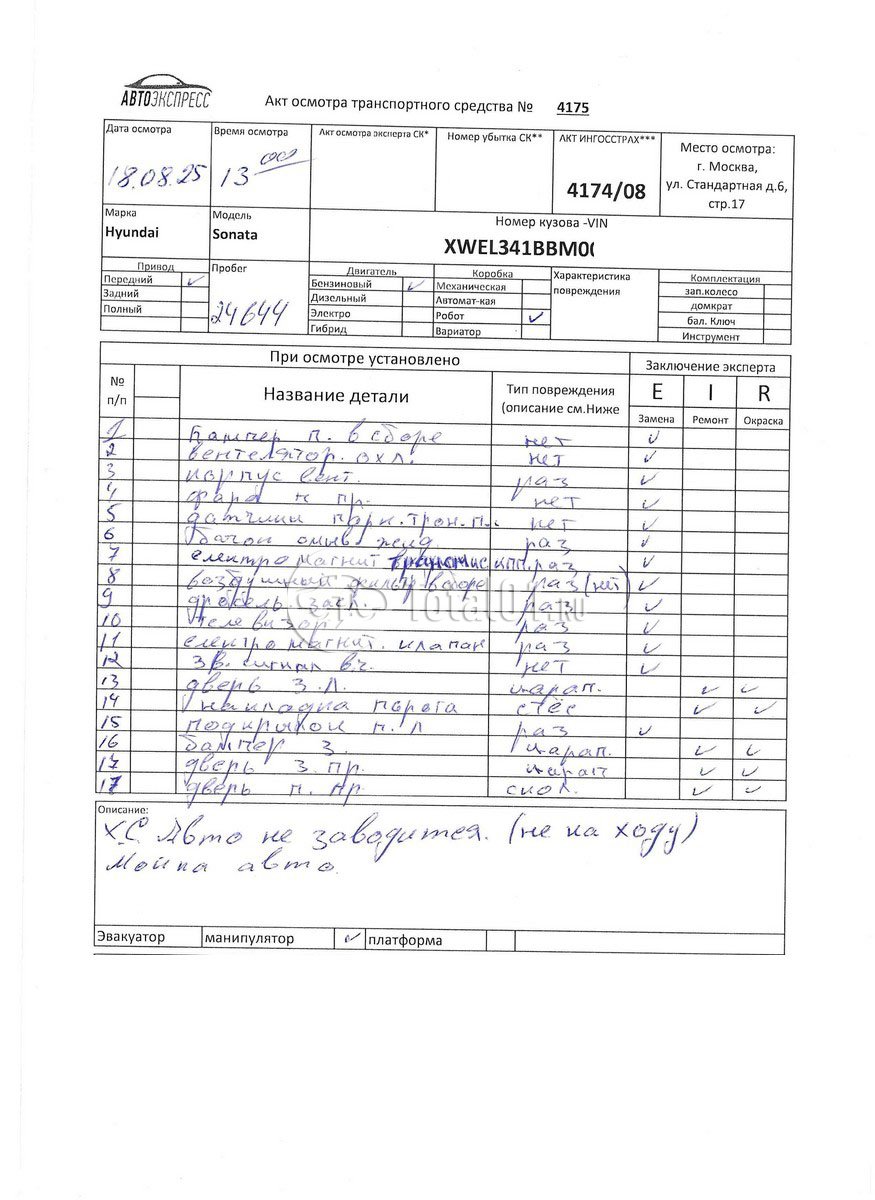 АВТОЭКСПРЕСС
Акт осмотра транспортного средства № 4175
Дата осмотра
18.08.25
Время осмотра
13 00
Акт осмотра эксперта СК*
Номер убытка СК**
АКТ ИНГОССТРАХ***
4174/08
Место осмотра:
г. Москва,
ул. Стандартная д.6,
стр.17
Марка
Hyundai
Модель
Sonata
Номер кузова -VIN
XWEL341BBM0
Привод
Передний ✓
Задний
Полный
Пробег
24644
Двигатель
Бензиновый ✓
Дизельный
Электро
Гибрид
Коробка
Механическая
Автомат-кая
Робот ✓
Вариатор
Характеристика
повреждения
Комплектация
зап.колесо
домкрат
бал. Ключ
Инструмент
При осмотре установлено
Заключение эксперта
№
п/п
Название детали
Тип повреждения
(описание см.Ниже
E I R
Замена Ремонт Окраска
1 Бампер п. в сборе нет ✓
2 вентелятор. охл. нет ✓
3 корпус вент. раз ✓
4 фара п пр. нет ✓
5 датчики парк.трон.п. нет ✓
6 бачок омыв. раз ✓
7 електромагнит кпп. раз ✓
8 воздушный фильтр в сборе раз (нет) ✓
9 дросель засл. раз ✓
10 телевизор раз ✓
11 електромагнит. клапан раз ✓
12 зв. сигнал вч. нет ✓
13 дверь з.л. царап. ✓ ✓
14 накладка порога стёс ✓ ✓
15 подкрылок п.л раз ✓
16 бампер з. царап. ✓ ✓
17 дверь з.пр. царап ✓ ✓
17 дверь п. пр скол. ✓ ✓
Описание:
Х.С Авто не заводится. (не на ходу)
Мойка авто.
Эвакуатор манипулятор ✓ платформа
Total01.ru